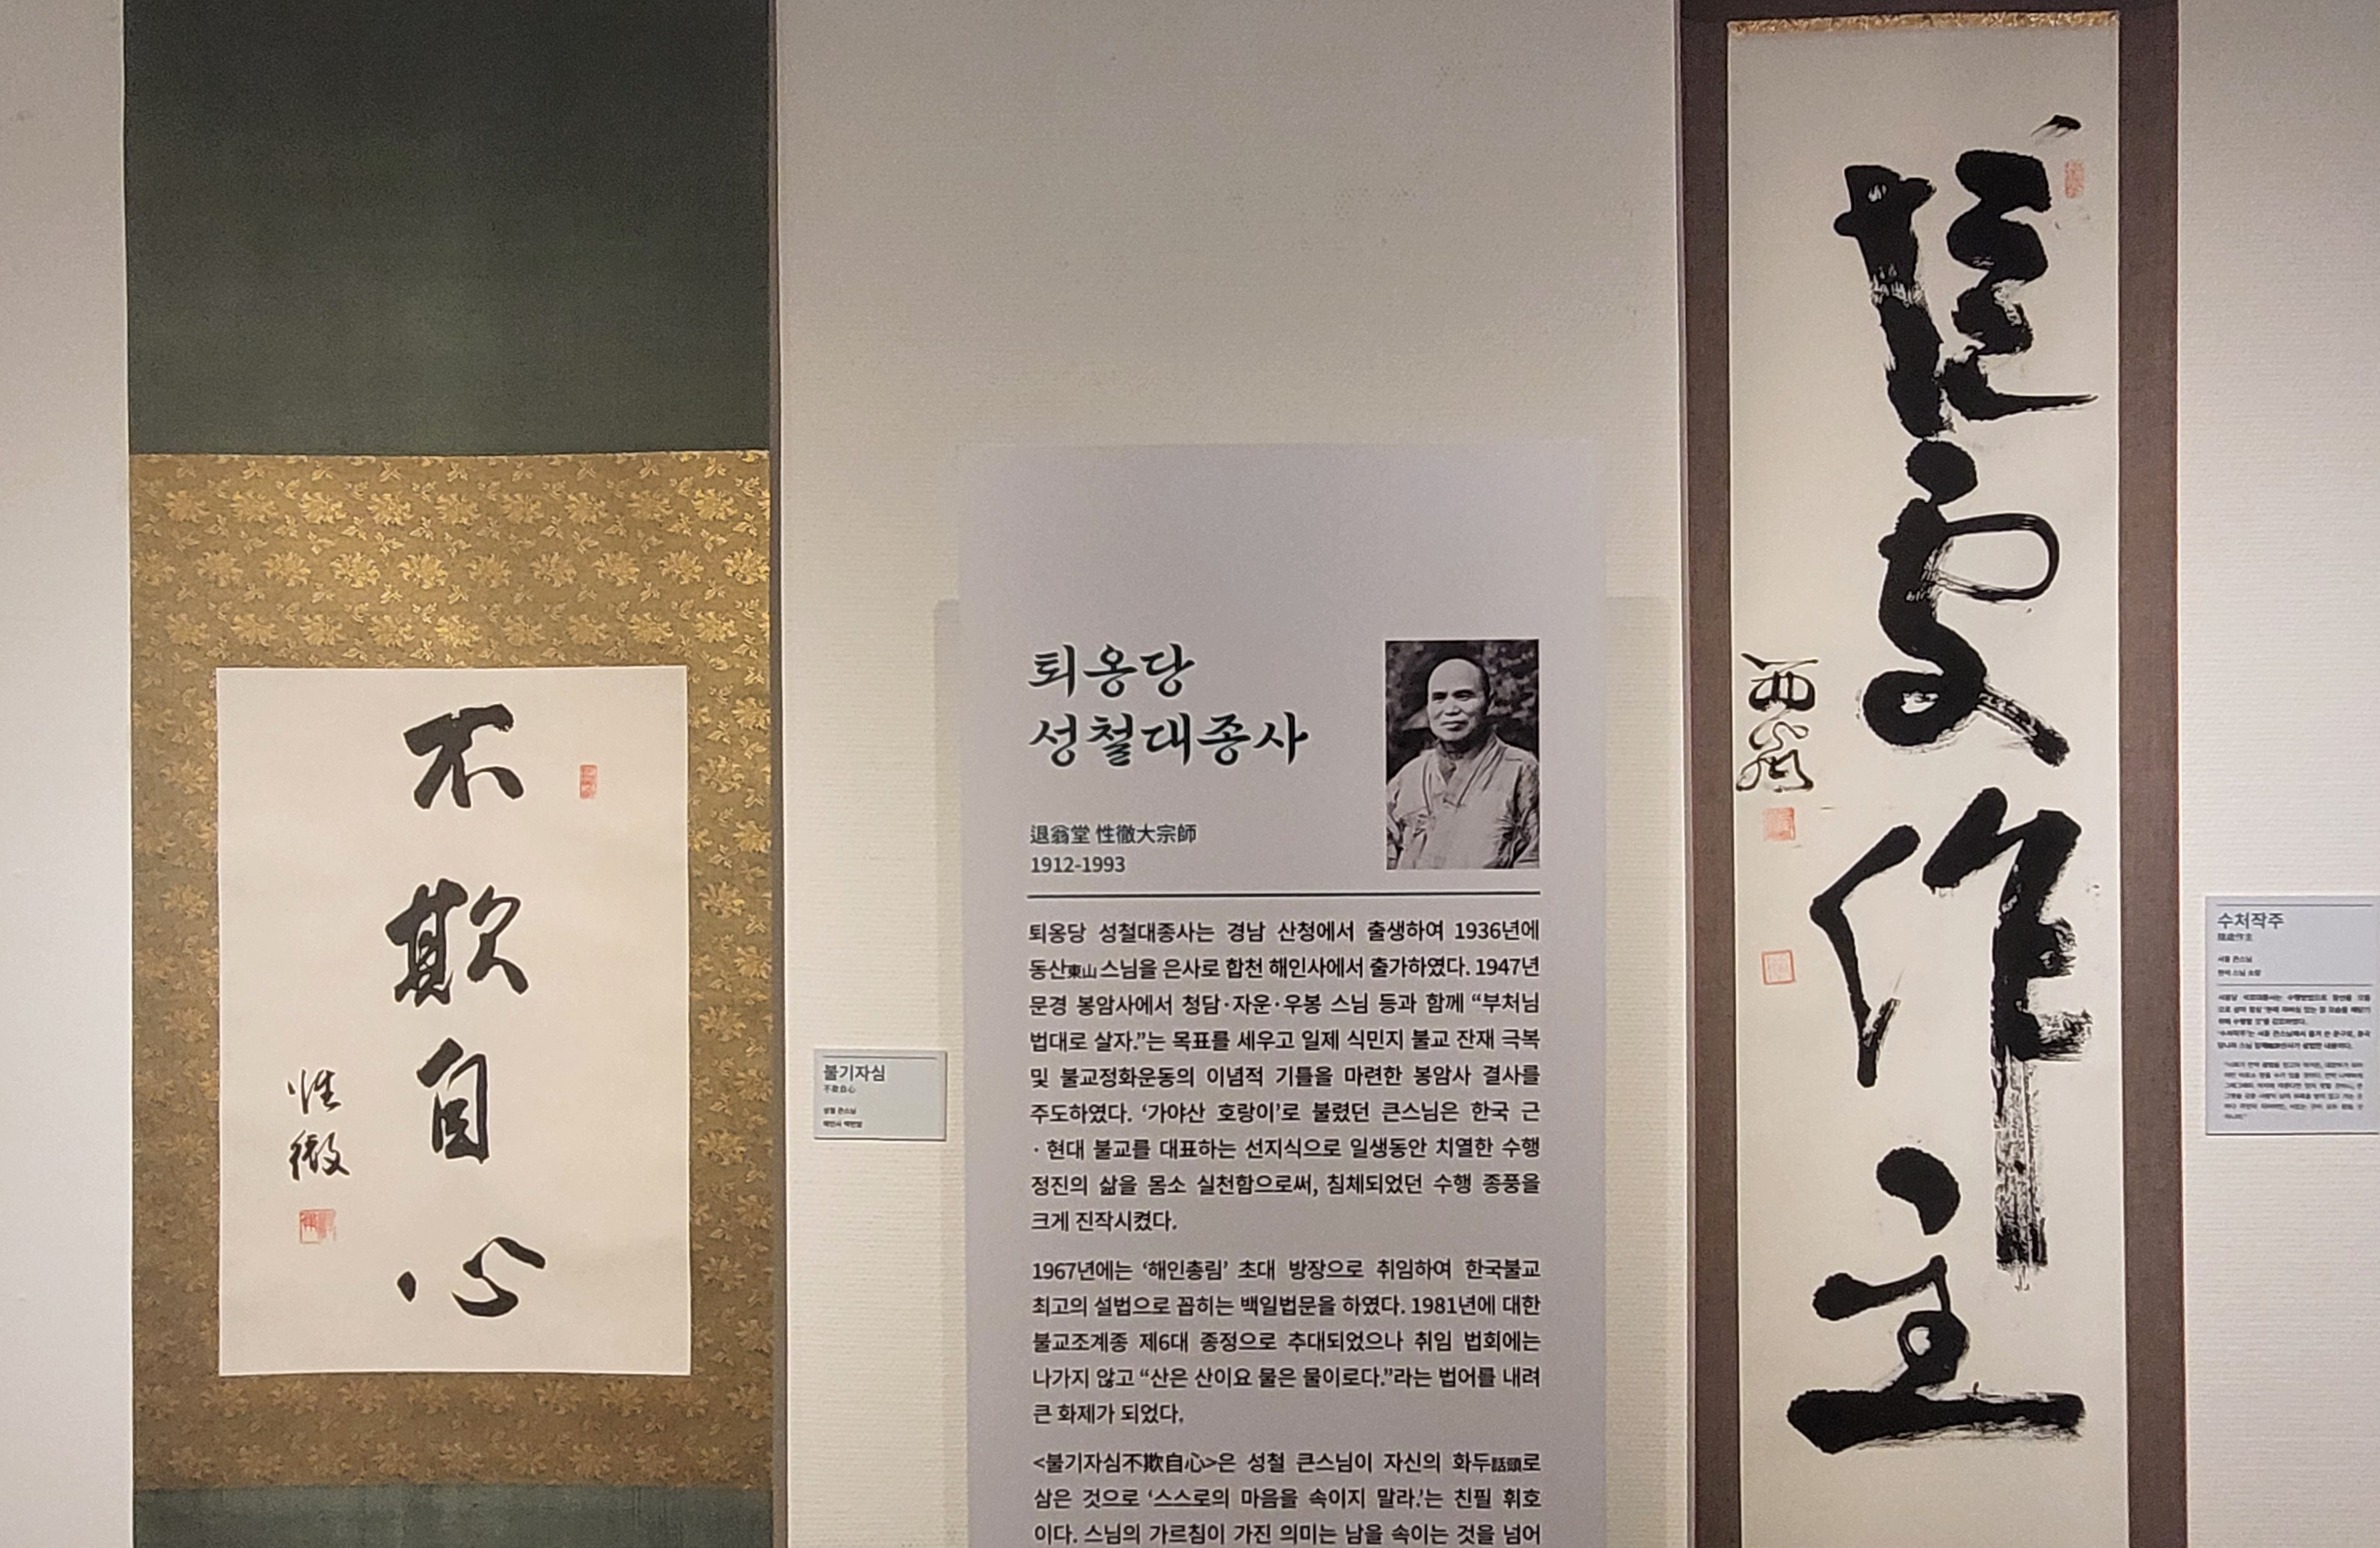 不
欺
自
心
性
徹
불기자심
不欺自心
성철 큰스님
해인사 백련암
퇴옹당
성철대종사
退翁堂 性徹大宗師
1912-1993
퇴옹당 성철대종사는 경남 산청에서 출생하여 1936년에
동산東山 스님을 은사로 합천 해인사에서 출가하였다. 1947년
문경 봉암사에서 청담·자운·우봉 스님 등과 함께 “부처님
법대로 살자.”는 목표를 세우고 일제 식민지 불교 잔재 극복
및 불교정화운동의 이념적 기틀을 마련한 봉암사 결사를
주도하였다. ‘가야산 호랑이’로 불렸던 큰스님은 한국 근
· 현대 불교를 대표하는 선지식으로 일생동안 치열한 수행
정진의 삶을 몸소 실천함으로써, 침체되었던 수행 종풍을
크게 진작시켰다.
1967년에는 ‘해인총림’ 초대 방장으로 취임하여 한국불교
최고의 설법으로 꼽히는 백일법문을 하였다. 1981년에 대한
불교조계종 제6대 종정으로 추대되었으나 취임 법회에는
나가지 않고 “산은 산이요 물은 물이로다.”라는 법어를 내려
큰 화제가 되었다.
<불기자심不欺自心>은 성철 큰스님이 자신의 화두話頭로
삼은 것으로 ‘스스로의 마음을 속이지 말라.’는 친필 휘호
이다. 스님의 가르침이 가진 의미는 남을 속이는 것을 넘어
隨
處
作
主
西翁
수처작주
隨處作主
서옹 큰스님